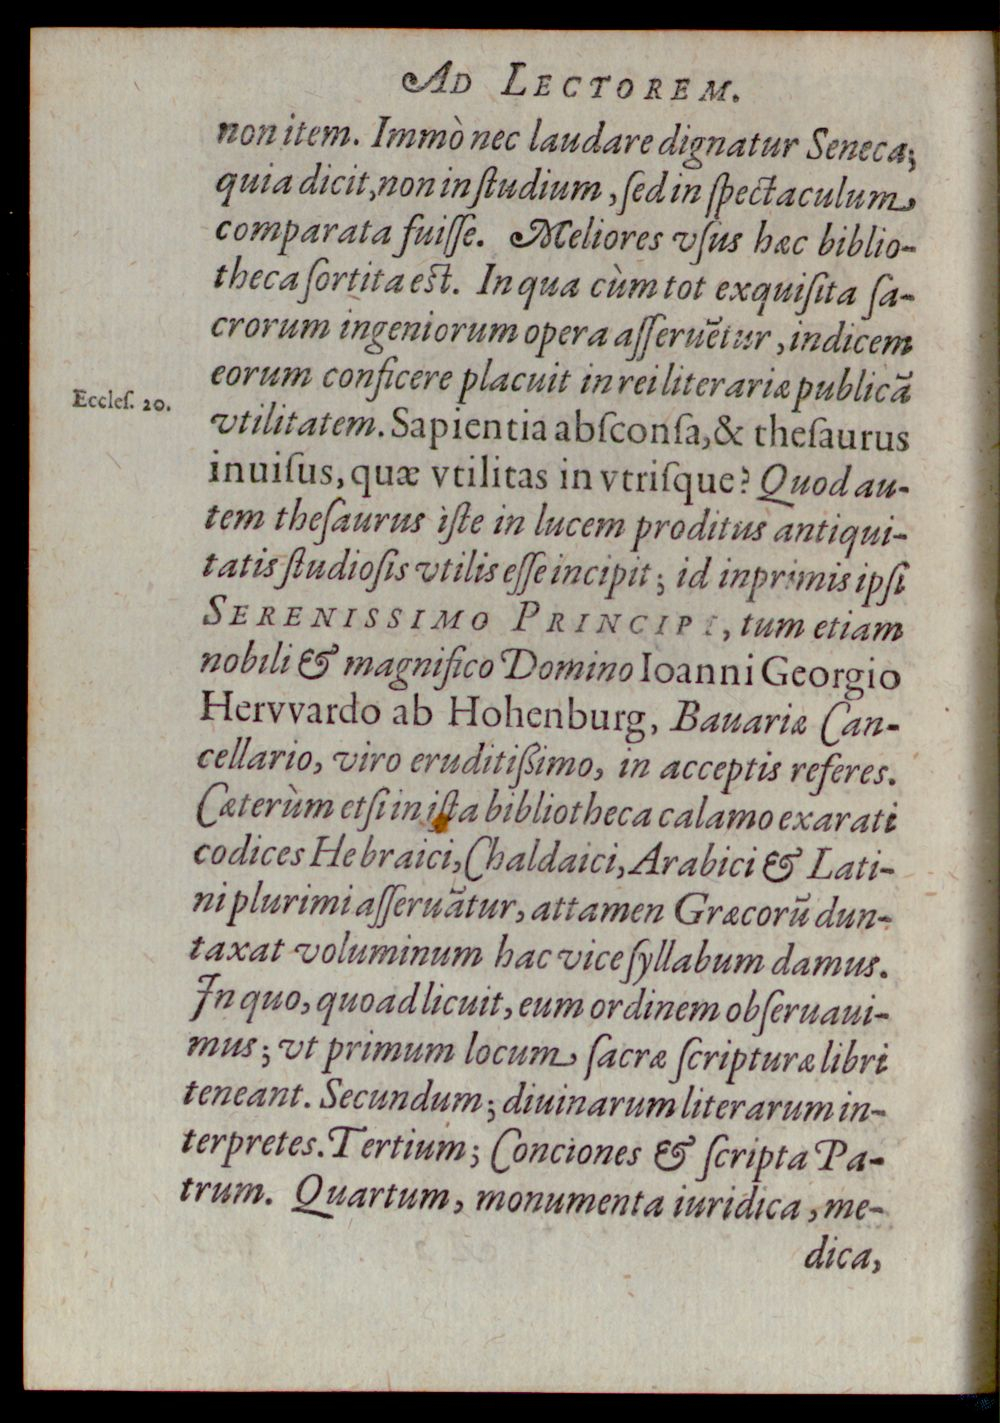 AD LECTOREM.
non item. Immò nec laudare dignatur Seneca;
quia dicit, non in ſtudium, ſed in ſpectaculum
comparata fuiſſe. Meliores vſus hæc biblio-
theca ſortita eſt. In qua cùm tot exquiſita ſa-
crorum ingeniorum opera aſſeruẽtur, indicem
eorum conficere placuit in rei literariæ publicã
Eccleſ. 20.
vtilitatem. Sapientia abſconſa, & theſaurus
inuiſus, quæ vtilitas in vtriſque? Quod au-
tem theſaurus iſte in lucem proditus antiqui-
tatis ſtudioſis vtilis eſſe incipit; id inprimis ipſi
SERENISSIMO PRINCIPI, tum etiam
nobili & magnifico Domino Ioanni Georgio
Hervvardo ab Hohenburg, Bauariæ Can-
cellario, viro eruditißimo, in acceptis referes.
Cæterùm etſi in iſta bibliotheca calamo exarati
codices Hebraici, Chaldaici, Arabici & Lati-
ni plurimi aſſeruãtur, attamen Græcorũ dun-
taxat voluminum hac vice ſyllabum damus.
In quo, quoad licuit, eum ordinem obſeruaui-
mus; vt primum locum ſacræ ſcripturæ libri
teneant. Secundum; diuinarum literarum in-
terpretes. Tertium; Conciones & ſcripta Pa-
trum. Quartum, monumenta iuridica, me-
dica,